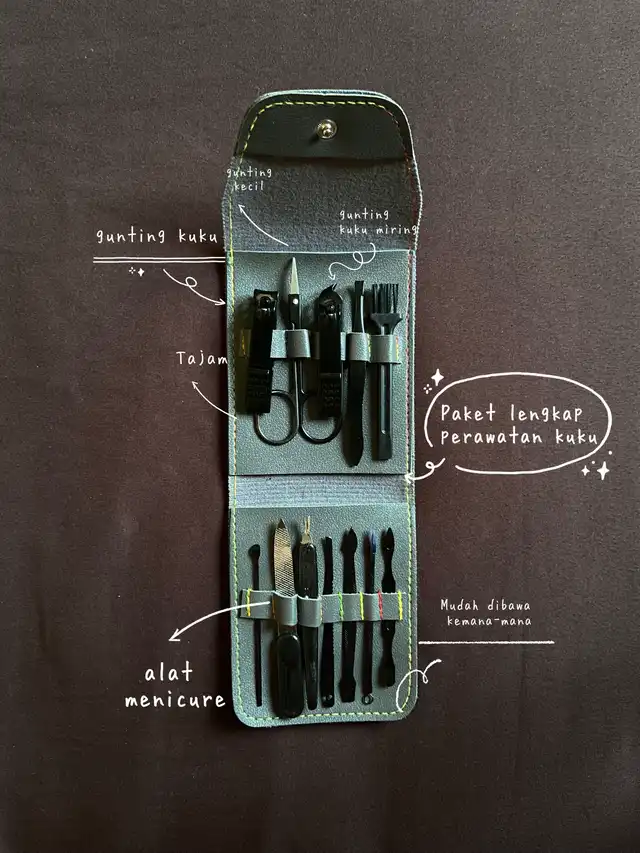 gunting
kecil
gunting
kuku miring
gunting kuku
Tajam
Paket lengkap
perawatan kuku
Mudah dibawa
kemana-mana
alat
menicure